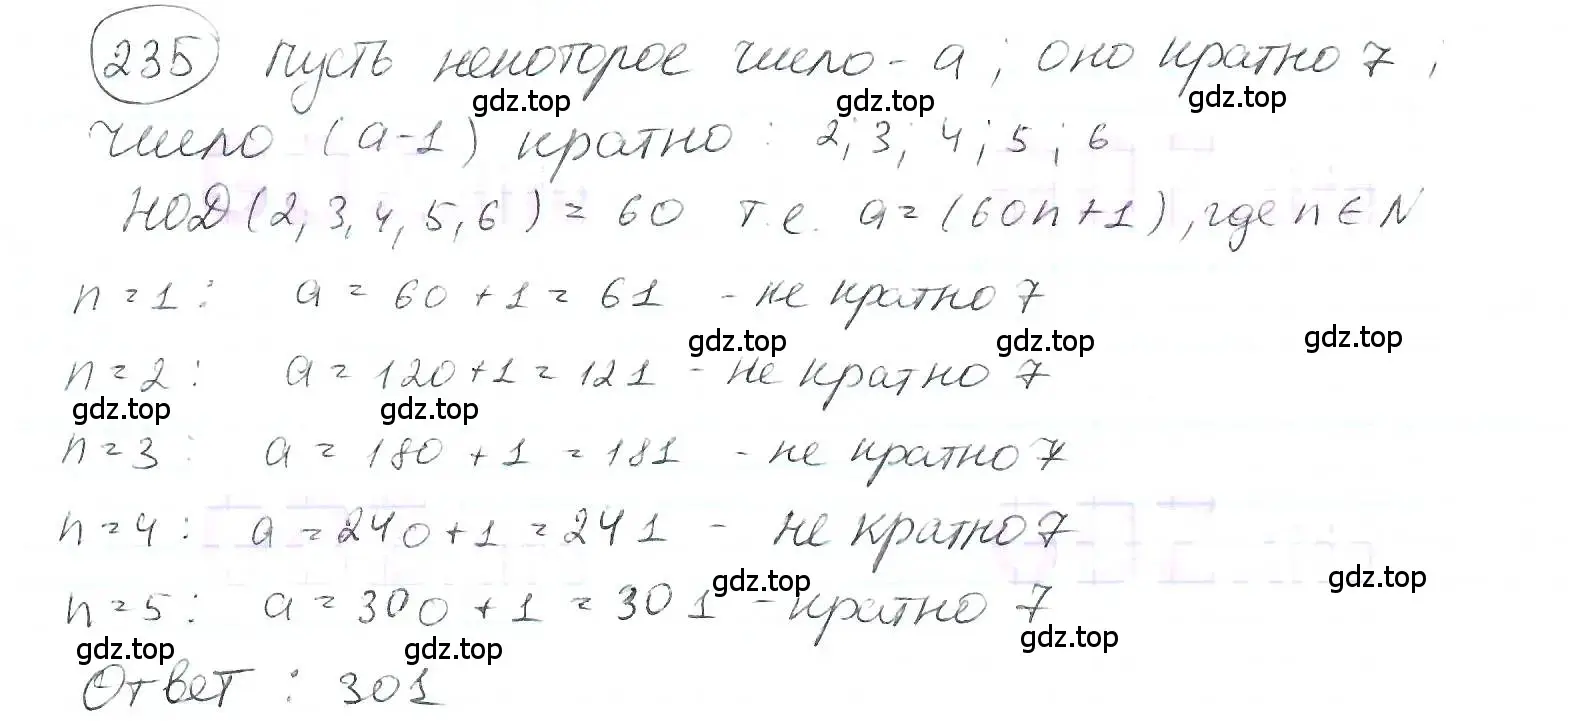 235 Пусть некоторое число - a; оно кратно 7,
gdz.top gdz.top gdz.top
число (a-1) кратно: 2; 3; 4; 5; 6
НОД(2, 3, 4, 5, 6) = 60 т.е. a = (60n+1), где n ∈ N
n = 1: a = 60 + 1 = 61 - не кратно 7
gdz.top gdz.top gdz.top
n = 2: a = 120+1 = 121 - не кратно 7
gdz.top gdz.top
n = 3: a = 180 + 1 = 181 - не кратно 7
n = 4: a = 240+1 = 241 - не кратно 7
gdz.top gdz.top
n = 5: a = 300 + 1 = 301 - кратно 7
gdz.top gdz.top gdz.top
Ответ: 301